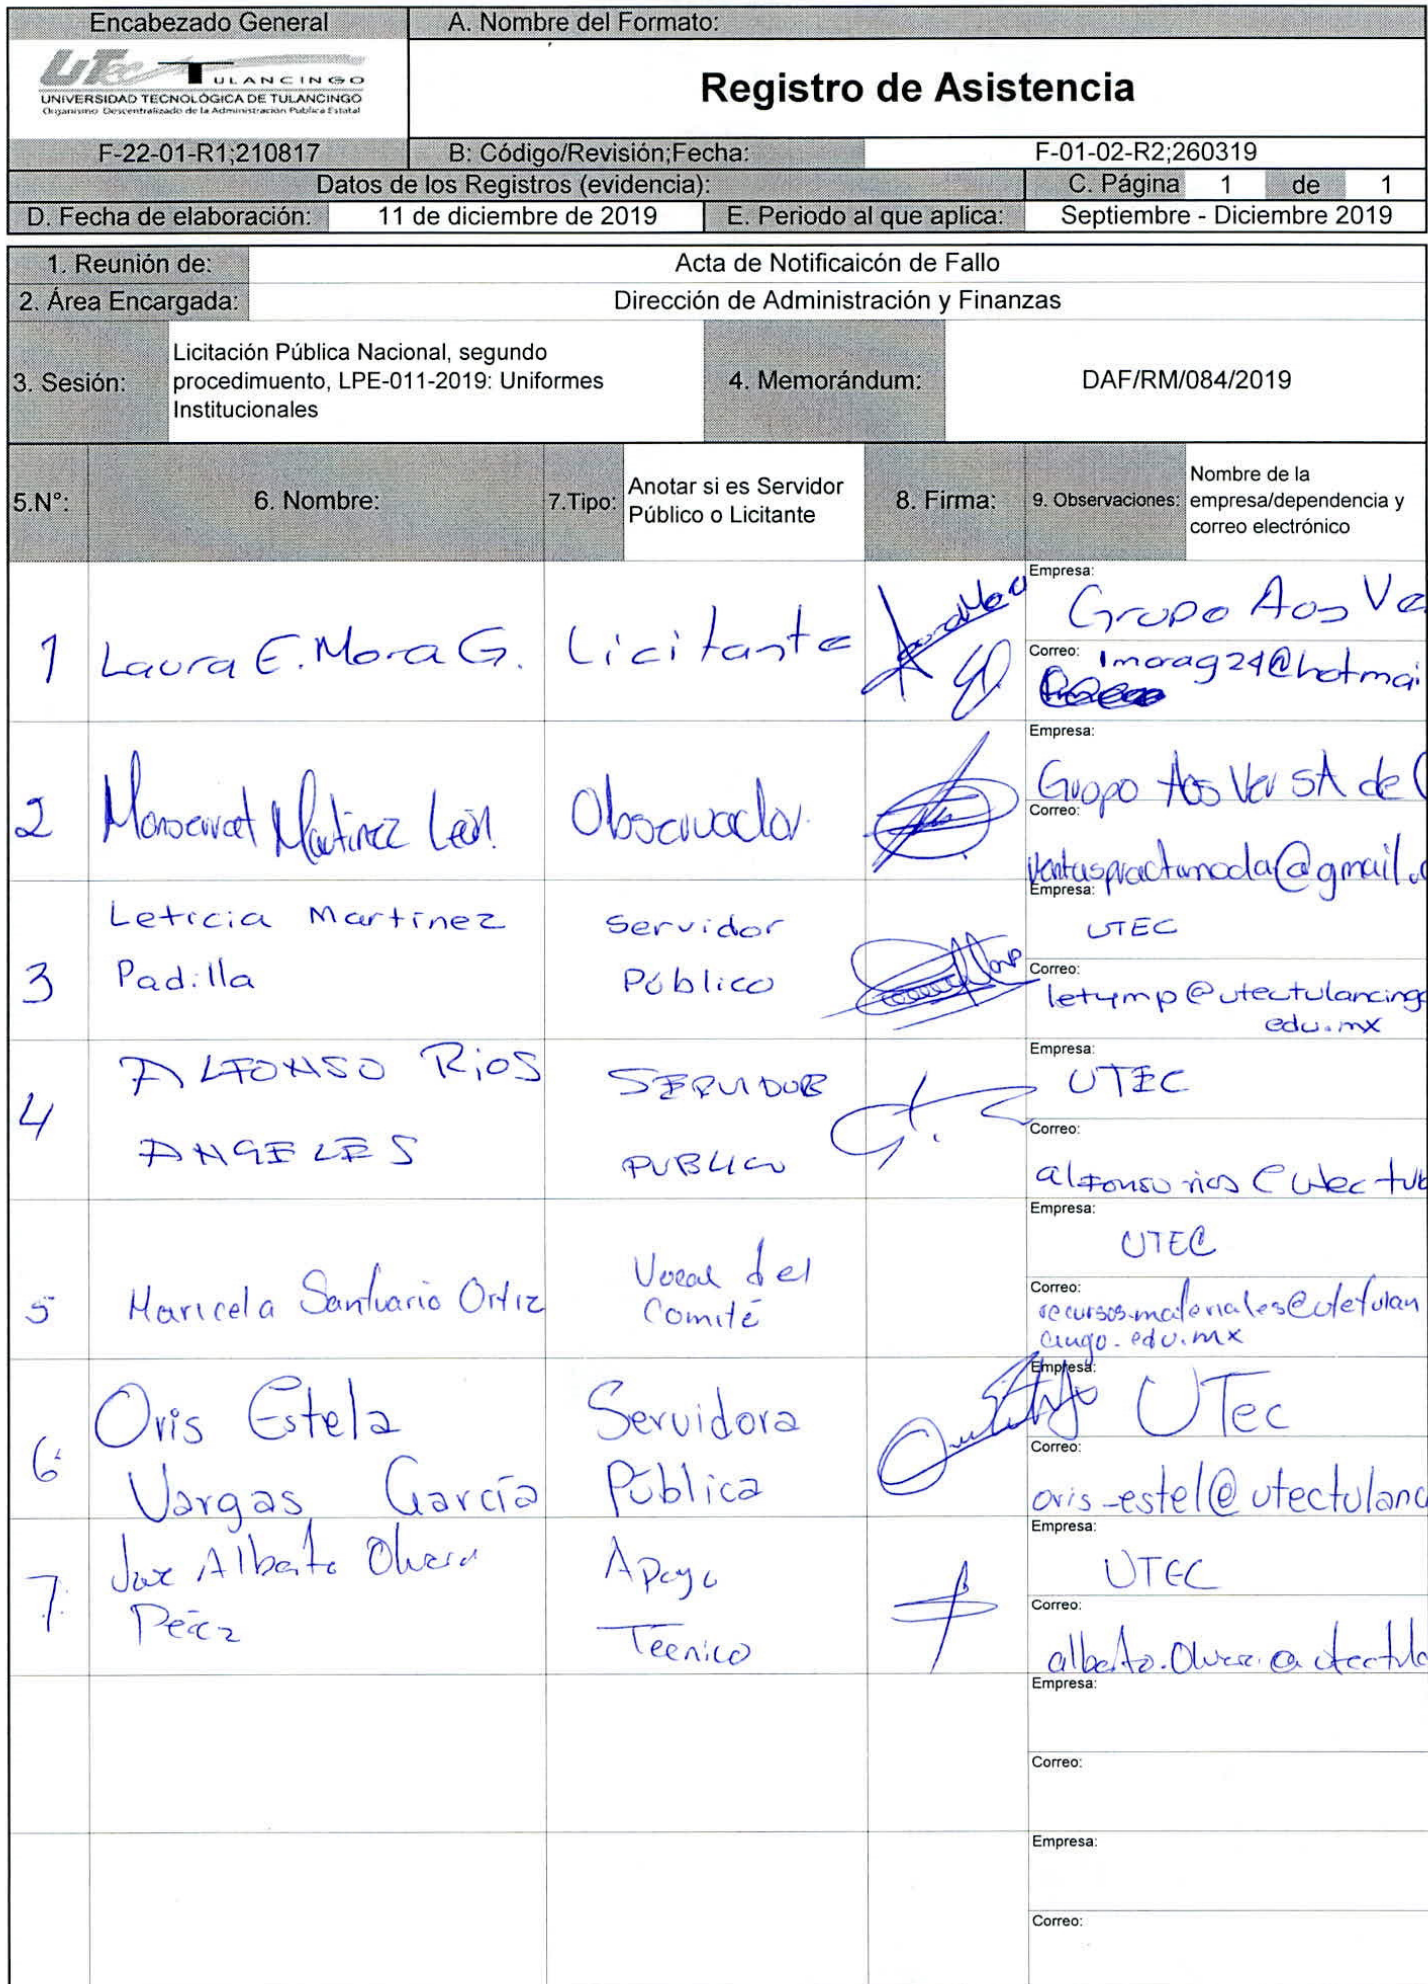 Encabezado General
A. Nombre del Formato:
UTec TULANCINGO
UNIVERSIDAD TECNOLÓGICA DE TULANCINGO
Organismo Descentralizado de la Administración Pública Estatal
Registro de Asistencia
F-22-01-R1;210817
B: Código/Revisión;Fecha:
F-01-02-R2;260319
Datos de los Registros (evidencia):
C. Página 1 de 1
D. Fecha de elaboración:
11 de diciembre de 2019
E. Periodo al que aplica:
Septiembre - Diciembre 2019
1. Reunión de:
Acta de Notificaicón de Fallo
2. Área Encargada:
Dirección de Administración y Finanzas
3. Sesión:
Licitación Pública Nacional, segundo
procedimuento, LPE-011-2019: Uniformes
Institucionales
4. Memorándum:
DAF/RM/084/2019
5.N°:
6. Nombre:
7.Tipo:
Anotar si es Servidor
Público o Licitante
8. Firma:
9. Observaciones:
Nombre de la
empresa/dependencia y
correo electrónico
1
Laura E. Mora G.
Licitante
Empresa:
Grupo Aos Ve
Correo:
lmorag24@hotmai
2
Monserrat Martinez León
Observador
Empresa:
Grupo Aos Ver SA de
Correo:
ventaspractimoda@gmail.
3
Leticia Martinez
Padilla
Servidor
Público
Empresa:
UTEC
Correo:
letymp@utectulancingo
edu.mx
4
ALFONSO RiOS
ANGELES
SERVIDOR
PUBLICO
Empresa:
UTEC
Correo:
alfonso rios @utec tul
5
Maricela Santuario Ortiz
Vocal del
Comité
Empresa:
UTEC
Correo:
recursos.materiales@utetulan
cingo.edu.mx
6
Oris Estela
Vargas García
Servidora
Pública
Empresa:
UTec
Correo:
oris_estel@utectulanc
7
Jose Alberto Olvera
Peréz
Apoyo
Tecnico
Empresa:
UTEC
Correo:
alberto.Olvera@utectula
Empresa:
Correo:
Empresa:
Correo: